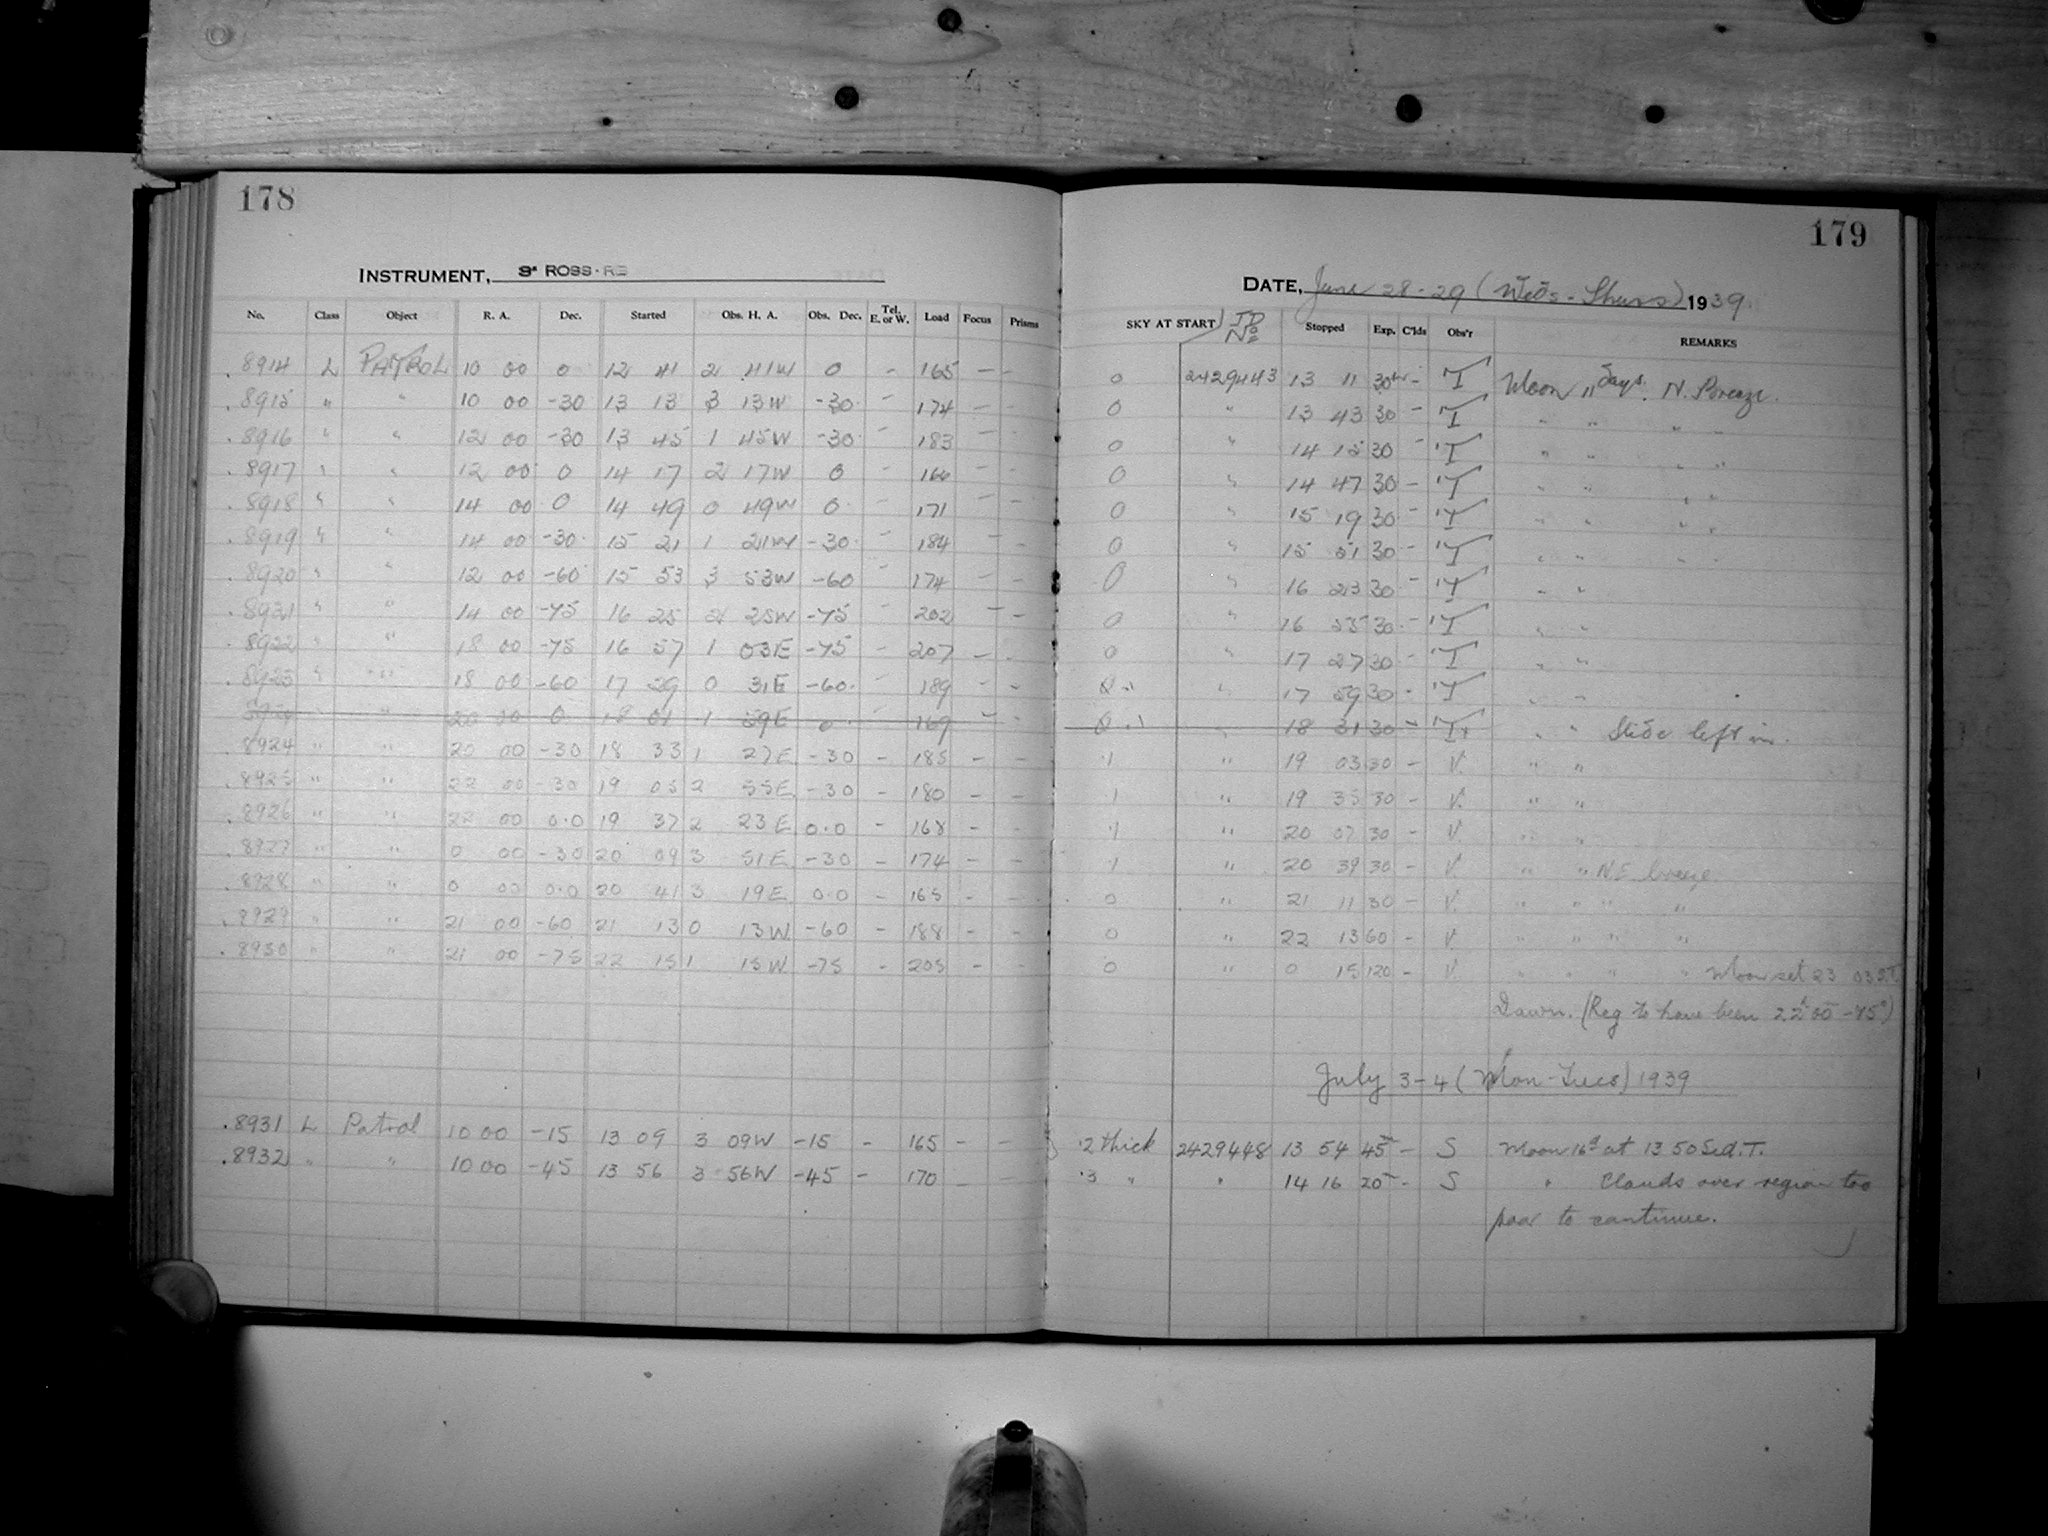 178
179
INSTRUMENT, 3" ROSS-
DATE, June 28-29 (Weds-Thurs) 1939
No. Class Object R. A. Dec. Started Obs. H. A. Obs. Dec. Tel. E. or W. Load Focus Prisms SKY AT START JD No Stopped Exp. C'lds Obs'r REMARKS
.8914 L PATROL 10 00 0 12 41 2 41W 0 - 165 - - 0 2429443 13 11 30 - T Moon 11 days. N. Breeze.
.8915 " " 10 00 -30 13 13 3 13W -30 - 174 - - 0 " 13 43 30 - T " " " "
.8916 " " 12 00 -30 13 45 1 45W -30 - 183 - - 0 " 14 15 30 - T " " " "
.8917 " " 12 00 0 14 17 2 17W 0 - 166 - - 0 " 14 47 30 - T " " " "
.8918 " " 14 00 0 14 49 0 49W 0 - 171 - - 0 " 15 19 30 - T " " " "
.8919 " " 14 00 -30 15 21 1 21W -30 - 184 - - 0 " 15 51 30 - T " " " "
.8920 " " 12 00 -60 15 53 3 53W -60 - 174 - - 0 " 16 23 30 - T " "
.8921 " " 14 00 -75 16 25 2 25W -75 - 202 - - 0 " 16 55 30 - T " "
.8922 " " 18 00 -75 16 57 1 03E -75 - 207 - - 0 " 17 27 30 - T " "
.8923 " " 18 00 -60 17 29 0 31E -60 - 189 - - " 17 59 30 - T " "
8924 " " 20 00 0 18 01 1 59E 0 - 169 - - " 18 31 30 - T " " Slide left in.
.8924 " " 20 00 -30 18 33 1 27E -30 - 185 - - .1 " 19 03 30 - V. " "
.8925 " " 22 00 -30 19 05 2 55E -30 - 180 - - 1 " 19 35 30 - V. " "
.8926 " " 22 00 0.0 19 37 2 23E 0.0 - 168 - - .1 " 20 07 30 - V. " "
.8927 " " 0 00 -30 20 09 3 51E -30 - 174 - - 1 " 20 39 30 - V. " " N.E. breeze
.8928 " " 0 00 0.0 20 41 3 19E 0.0 - 165 - - 0 " 21 11 30 - V. " " " "
.8929 " " 21 00 -60 21 13 0 13W -60 - 188 - - 0 " 22 13 60 - V. " " " "
.8930 " " 21 00 -75 22 15 1 15W -75 - 205 - - 0 " 0 15 120 - V. " " " " Moon set 23 03 S.T.
Dawn. (Reg to have been 22h 00m -75°)
July 3-4 (Mon-Tues) 1939
.8931 L Patrol 10 00 -15 13 09 3 09W -15 - 165 - - .2 thick 2429448 13 54 45m - S Moon 16d at 13 50 Sid. T.
.8932 " " 10 00 -45 13 56 3 56W -45 - 170 - - .3 " " 14 16 20m - S " Clouds over region too
poor to continue.